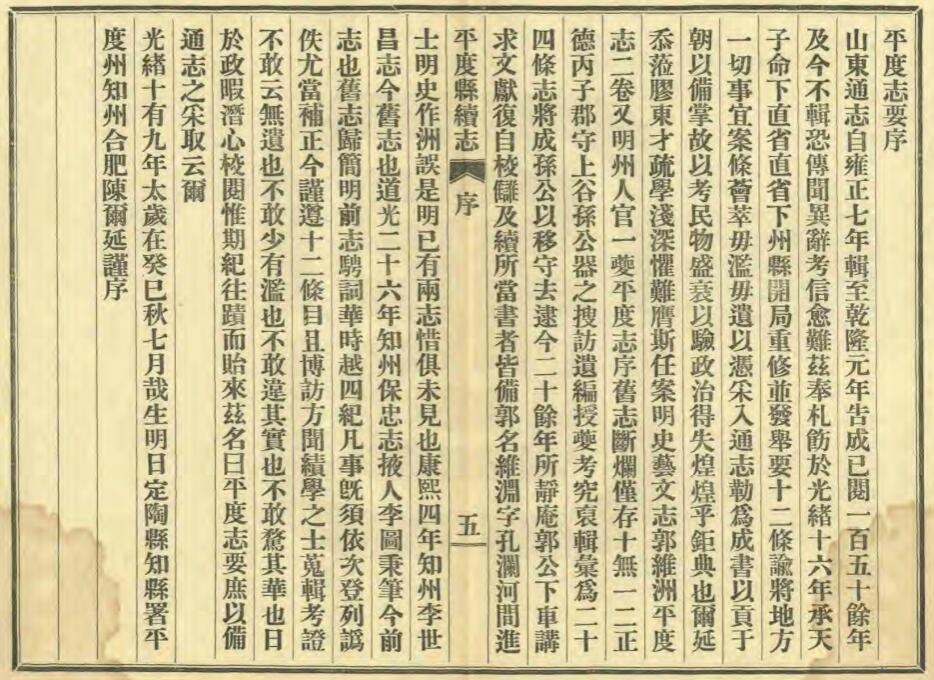 平度志要序
山東通志自雍正七年輯至乾隆元年告成已閱一百五十餘年
及今不輯恐傳聞異辭考信愈難茲奉札飭於光緒十六年承天
子命下直省直省下州縣開局重修並發舉要十二條諭將地方
一切事宜案條薈萃毋濫毋遺以憑采入通志勒爲成書以貢于
朝以備掌故以考民物盛衰以驗政治得失煌煌乎鉅典也爾延
忝蒞膠東才疏學淺深懼難膺斯任案明史藝文志郭維洲平度
志二卷又明州人官一夔平度志序舊志斷爛僅存十無一二正
德丙子郡守上谷孫公器之搜訪遺編授夔考究裒輯彙爲二十
四條志將成孫公以移守去逮今二十餘年所靜庵郭公下車講
求文獻復自校讎及續所當書者皆備郭名維淵字孔瀾河間進
平度縣續志 序 五
士明史作洲誤是明已有兩志惜俱未見也康熙四年知州李世
昌志今舊志也道光二十六年知州保忠志掖人李圖秉筆今前
志也舊志歸簡明前志騁詞華時越四紀凡事旣須依次登列譌
佚尤當補正今謹遵十二條目且博訪方聞績學之士蒐輯考證
不敢云無遺也不敢少有濫也不敢違其實也不敢騖其華也日
於政暇潛心校閱惟期紀往蹟而貽來茲名曰平度志要庶以備
通志之采取云爾
光緒十有九年太歲在癸巳秋七月哉生明日定陶縣知縣署平
度州知州合肥陳爾延謹序